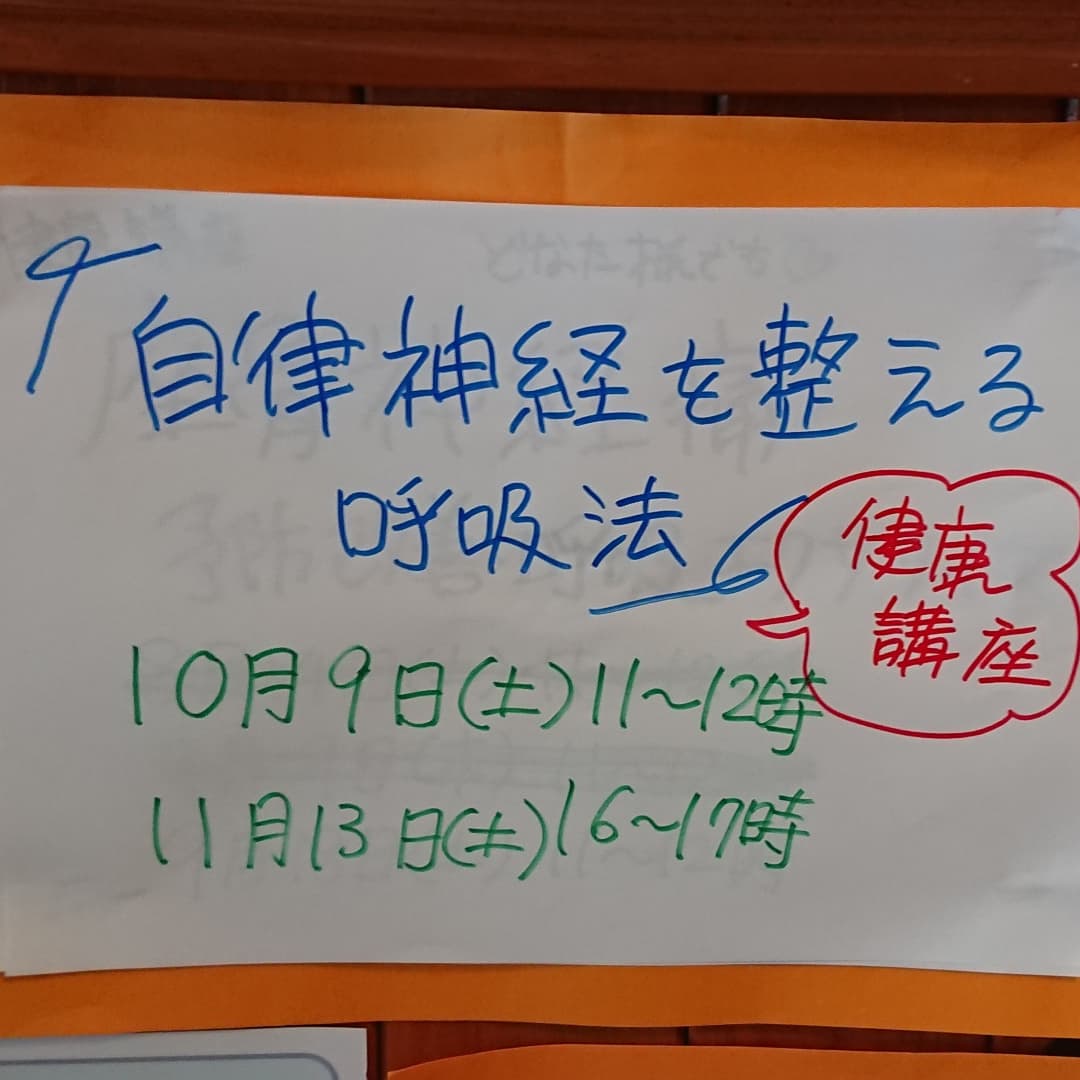 自律神経を整える
呼吸法
健康
講座
10月9日(土)11～12時
11月13日(土)16～17時